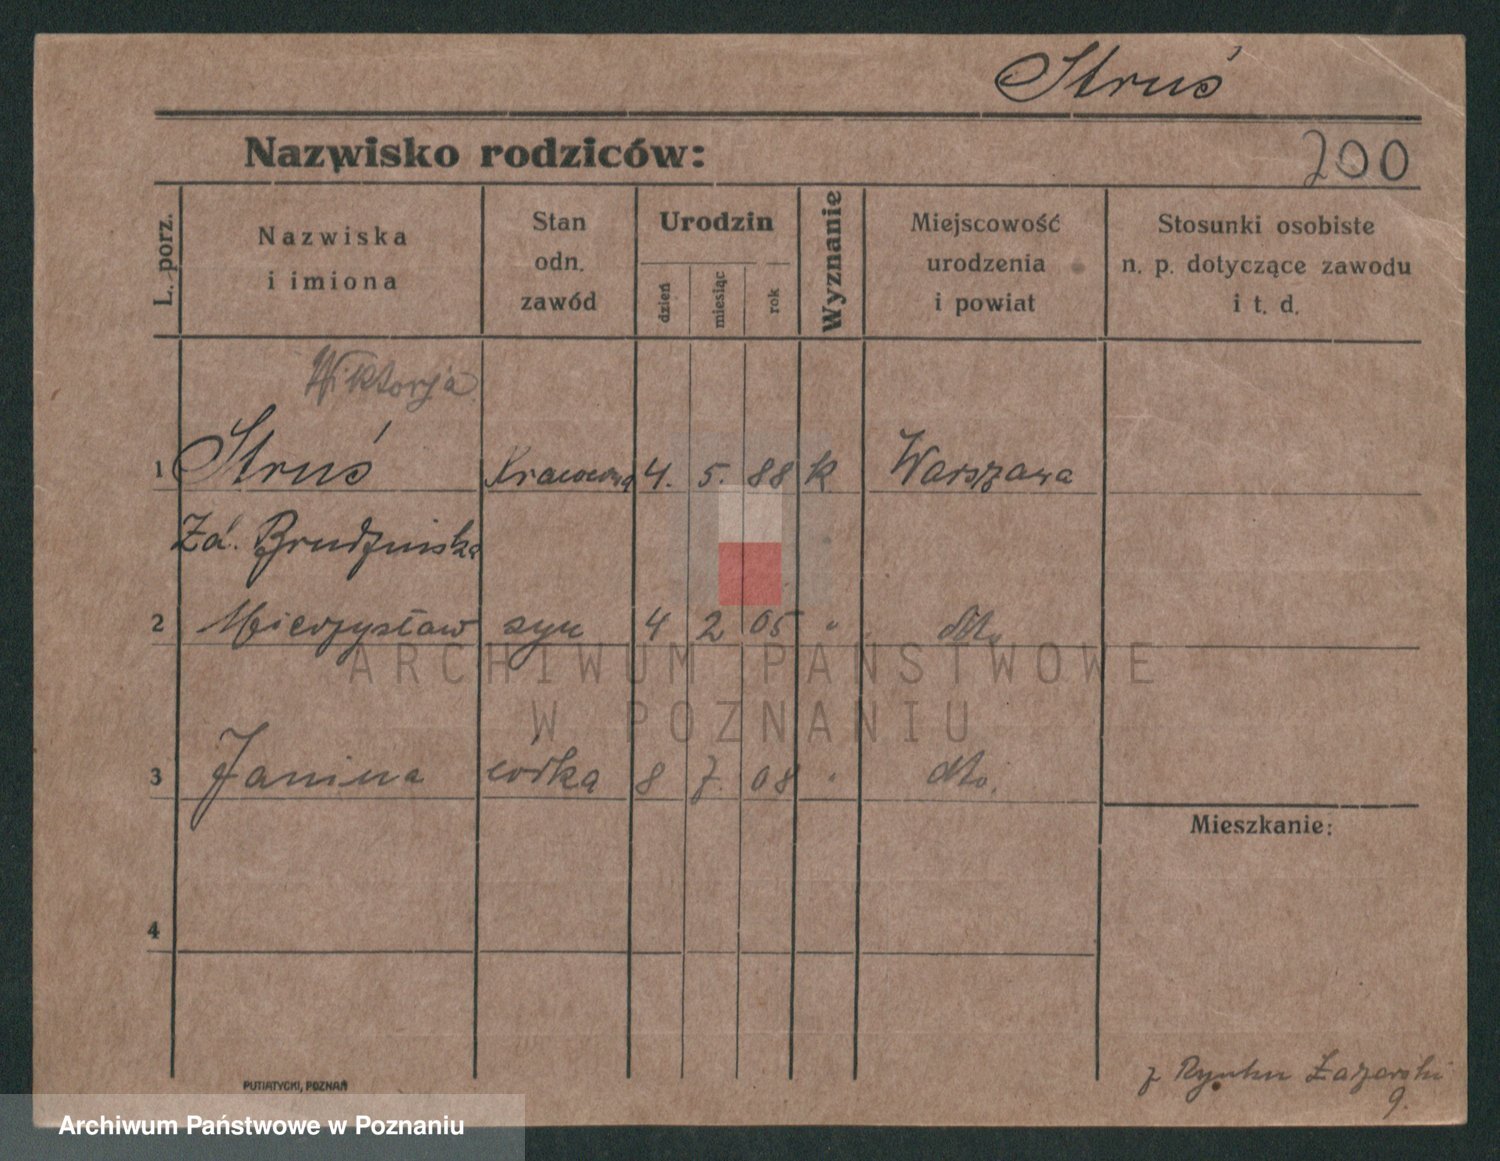 Struś
Nazwisko rodziców:
200
L. porz.
Nazwiska
i imiona
Stan
odn.
zawód
Urodzin
dzień
miesiąc
rok
Wyznanie
Miejscowość
urodzenia
i powiat
Stosunki osobiste
n. p. dotyczące zawodu
i t. d.
Wiktorja
1 Struś Kracowna 4. 5. 88 k Warszawa
Zd. Brudzinska
2 Mieczysław syn 4 2 05 " dto
ARCHIWUM PAŃSTWOWE
W POZNANIU
3 Janina córka 8 7. 08 " dto.
Mieszkanie:
4
z Rynku Łazarski
9.
PUTIATYCKI, POZNAŃ
Archiwum Państwowe w Poznaniu